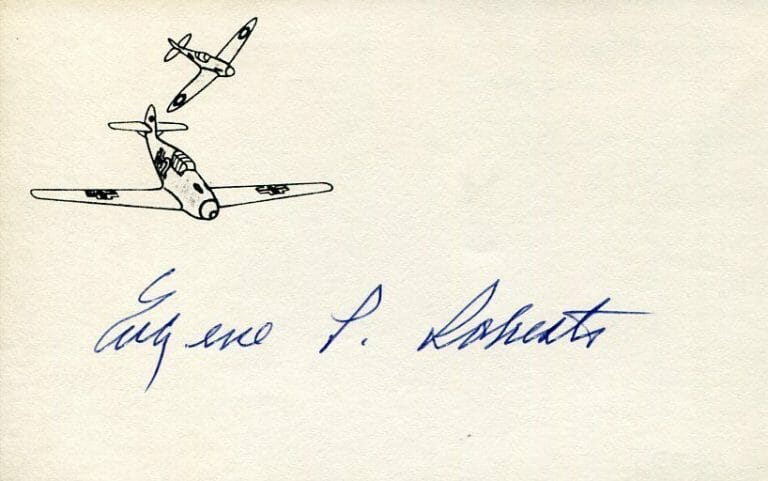 Eugene P. Roberts